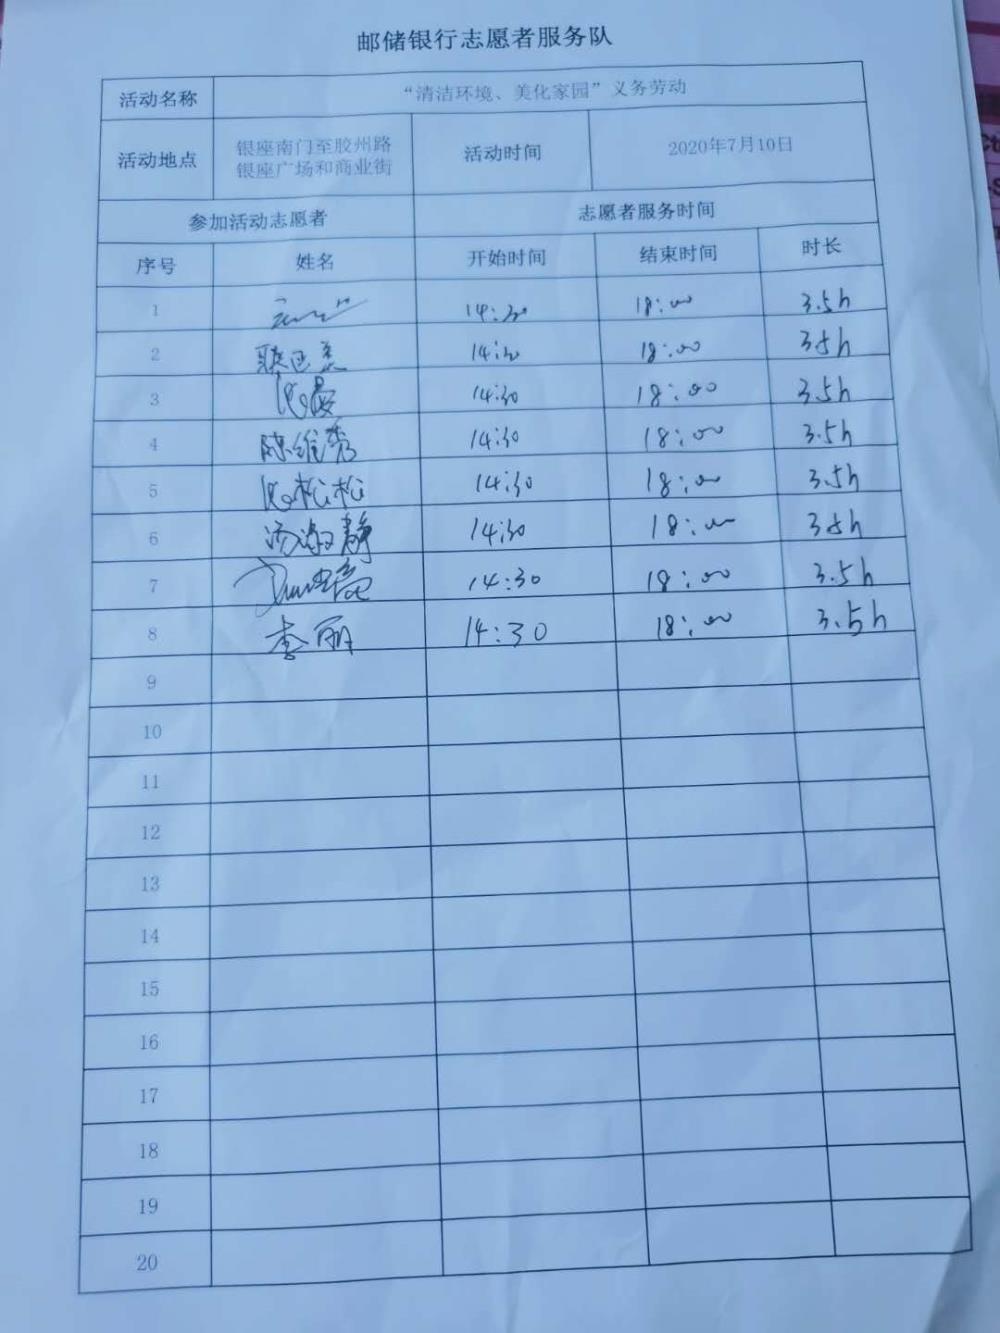 邮储银行志愿者服务队
活动名称 “清洁环境、美化家园”义务劳动
活动地点 银座南门至胶州路 活动时间 2020年7月10日
银座广场和商业街
参加活动志愿者 志愿者服务时间
序号 姓名 开始时间 结束时间 时长
1 14:30 18:00 3.5h
2 14:30 18:00 3.5h
3 14:30 18:00 3.5h
4 陈维秀 14:30 18:00 3.5h
5 松松 14:30 18:00 3.5h
6 汤淑静 14:30 18:00 3.5h
7 14:30 18:00 3.5h
8 李丽 14:30 18:00 3.5h
9
10
11
12
13
14
15
16
17
18
19
20